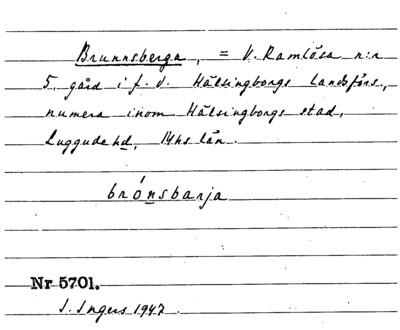 Brunnsberga, = V. Ramlösa n:r
5, gård i f.d. Hälsingborgs landsförs.,
numera inom Hälsingborgs stad,
Luggude hd, Mhs län.
brónsbarja
Nr 5701.
I. Ingers 1947